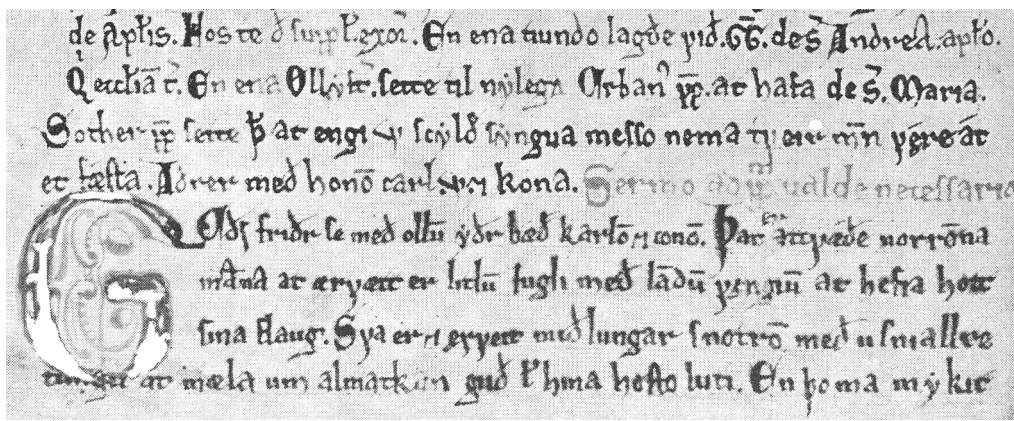 de apłis. Hoste ð exor. En ena tiundo lagðe við. GG. de s̄ Andrea. apło.
eccłiā t̄. En ena sette til nylega Urban' pp̄. at hafa de s̄. Maria.
Sother pp̄ sette þ̄ at engi scylð syngua messo nema tueir m̄n vere at
et fæsta. Aðrer með honō carl ⁊ kona. Sermo ad pp̄m valde necessario
Guðs friðr se með ollū yðr bæð karlō ⁊ conō. Þat er attquæðe norrōna
man̄a at ærvætt er litlū fugli með lāðū vengiū at hefia hott
sina flaug. Sva er ⁊ ervett með lungar snotrō með usniallre
tungu at mæla um almatkan guð hina hesto luti. En þo ma mykit